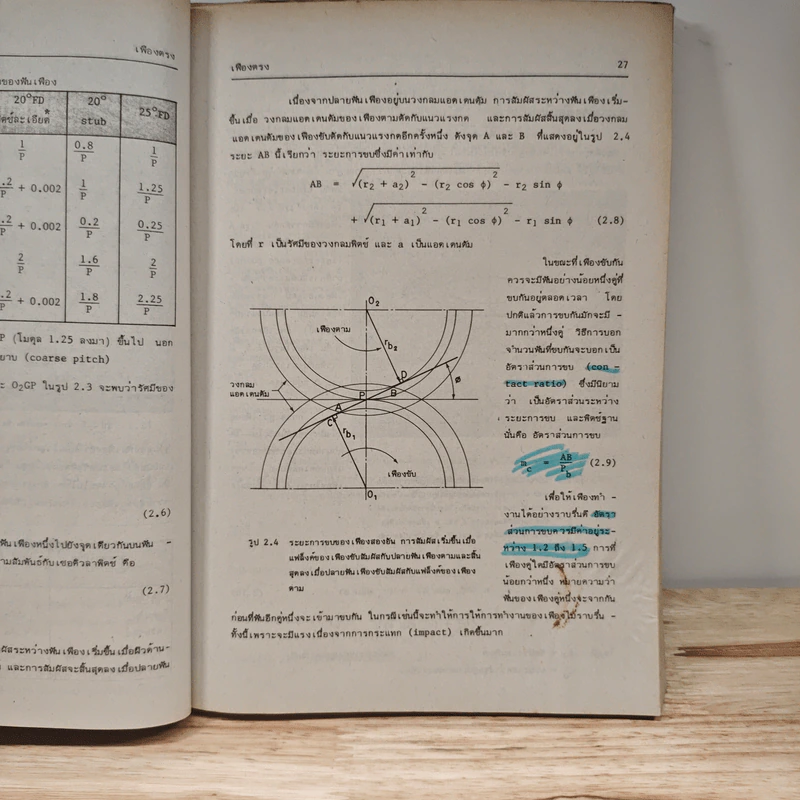 เฟืองตรง
ของฟันเฟือง
20°FD
20°
stub
25°FD
1/P
0.8/P
1/P
+ 0.002
1/P
1.25/P
+ 0.002
0.2/P
0.25/P
2/P
1.6/P
2/P
+ 0.002
1.8/P
2.25/P
P (โมดูล 1.25 ลงมา) ขึ้นไป นอก
ยาบ (coarse pitch)
ะ O₂GP ในรูป 2.3 จะพบว่ารัศมีของ
(2.6)
ันเฟืองหนึ่งไปยังจุดเดียวกันบนฟัน -
ามสัมพันธ์กับเซอคิวลาพิตช์ คือ
(2.7)
ผัสระหว่างฟันเฟืองเริ่มขึ้นเมื่อผิวด้าน-
และการสัมผัสจะสิ้นสุดลงเมื่อปลายฟัน
เฟืองตรง 27
เนื่องจากปลายฟันเฟืองอยู่บนวงกลมแอดเดนดัม การสัมผัสระหว่างฟันเฟืองเริ่ม-
ขึ้นเมื่อ วงกลมแอดเดนดัมของเฟืองตามตัดกับแนวแรงกด และการสัมผัสสิ้นสุดลงเมื่อวงกลม
แอดเดนดัมของเฟืองขับตัดกับแนวแรงกดอีกครั้งหนึ่ง ดังจุด A และ B ที่แสดงอยู่ในรูป 2.4
ระยะ AB นี้เรียกว่า ระยะการขบซึ่งมีค่าเท่ากับ
AB = √((r₂ + a₂)² - (r₂ cos φ)²) - r₂ sin φ
+ √((r₁ + a₁)² - (r₁ cos φ)²) - r₁ sin φ (2.8)
โดยที่ r เป็นรัศมีของวงกลมพิตช์ และ a เป็นแอดเดนดัม
O₂
เฟืองตาม
r_b₂
วงกลม
แอดเดนดัม
D
P
B
A
C
ø
r_b₁
เฟืองขับ
O₁
รูป 2.4 ระยะการขบของเฟืองสองอัน การสัมผัสเริ่มขึ้นเมื่อ
แฟล็งค์ของเฟืองขับสัมผัสกับปลายฟันเฟืองตามและสิ้น
สุดลงเมื่อปลายฟันเฟืองขับสัมผัสกับแฟล็งค์ของเฟือง
ตาม
ในขณะที่เฟืองขบกัน
ควรจะมีฟันอย่างน้อยหนึ่งคู่ที่
ขบกันอยู่ตลอดเวลา โดย
ปกติแล้วการขบกันมักจะมี -
มากกว่าหนึ่งคู่ วิธีการบอก
จำนวนฟันที่ขบกันจะบอกเป็น
อัตราส่วนการขบ (con -
tact ratio) ซึ่งมีนิยาม
ว่า เป็นอัตราส่วนระหว่าง
ระยะการขบ และพิตช์ฐาน
นั่นคือ อัตราส่วนการขบ
m_c = AB/P_b (2.9)
เพื่อให้เฟืองทำ -
งานได้อย่างราบรื่นดี อัตรา
ส่วนการขบควรมีค่าอยู่ระ-
หว่าง 1.2 ถึง 1.5 การที่
เฟืองคู่ใดมีอัตราส่วนการขบ
น้อยกว่าหนึ่ง หมายความว่า
ฟันของเฟืองคู่หนึ่งจะจากกัน
ก่อนที่ฟันอีกคู่หนึ่งจะเข้ามาขบกัน ในกรณีเช่นนี้จะทำให้การให้การทำงานของเฟืองไม่ราบรื่น -
ทั้งนี้เพราะจะมีแรงเนื่องจากการกระแทก (impact) เกิดขึ้นมาก